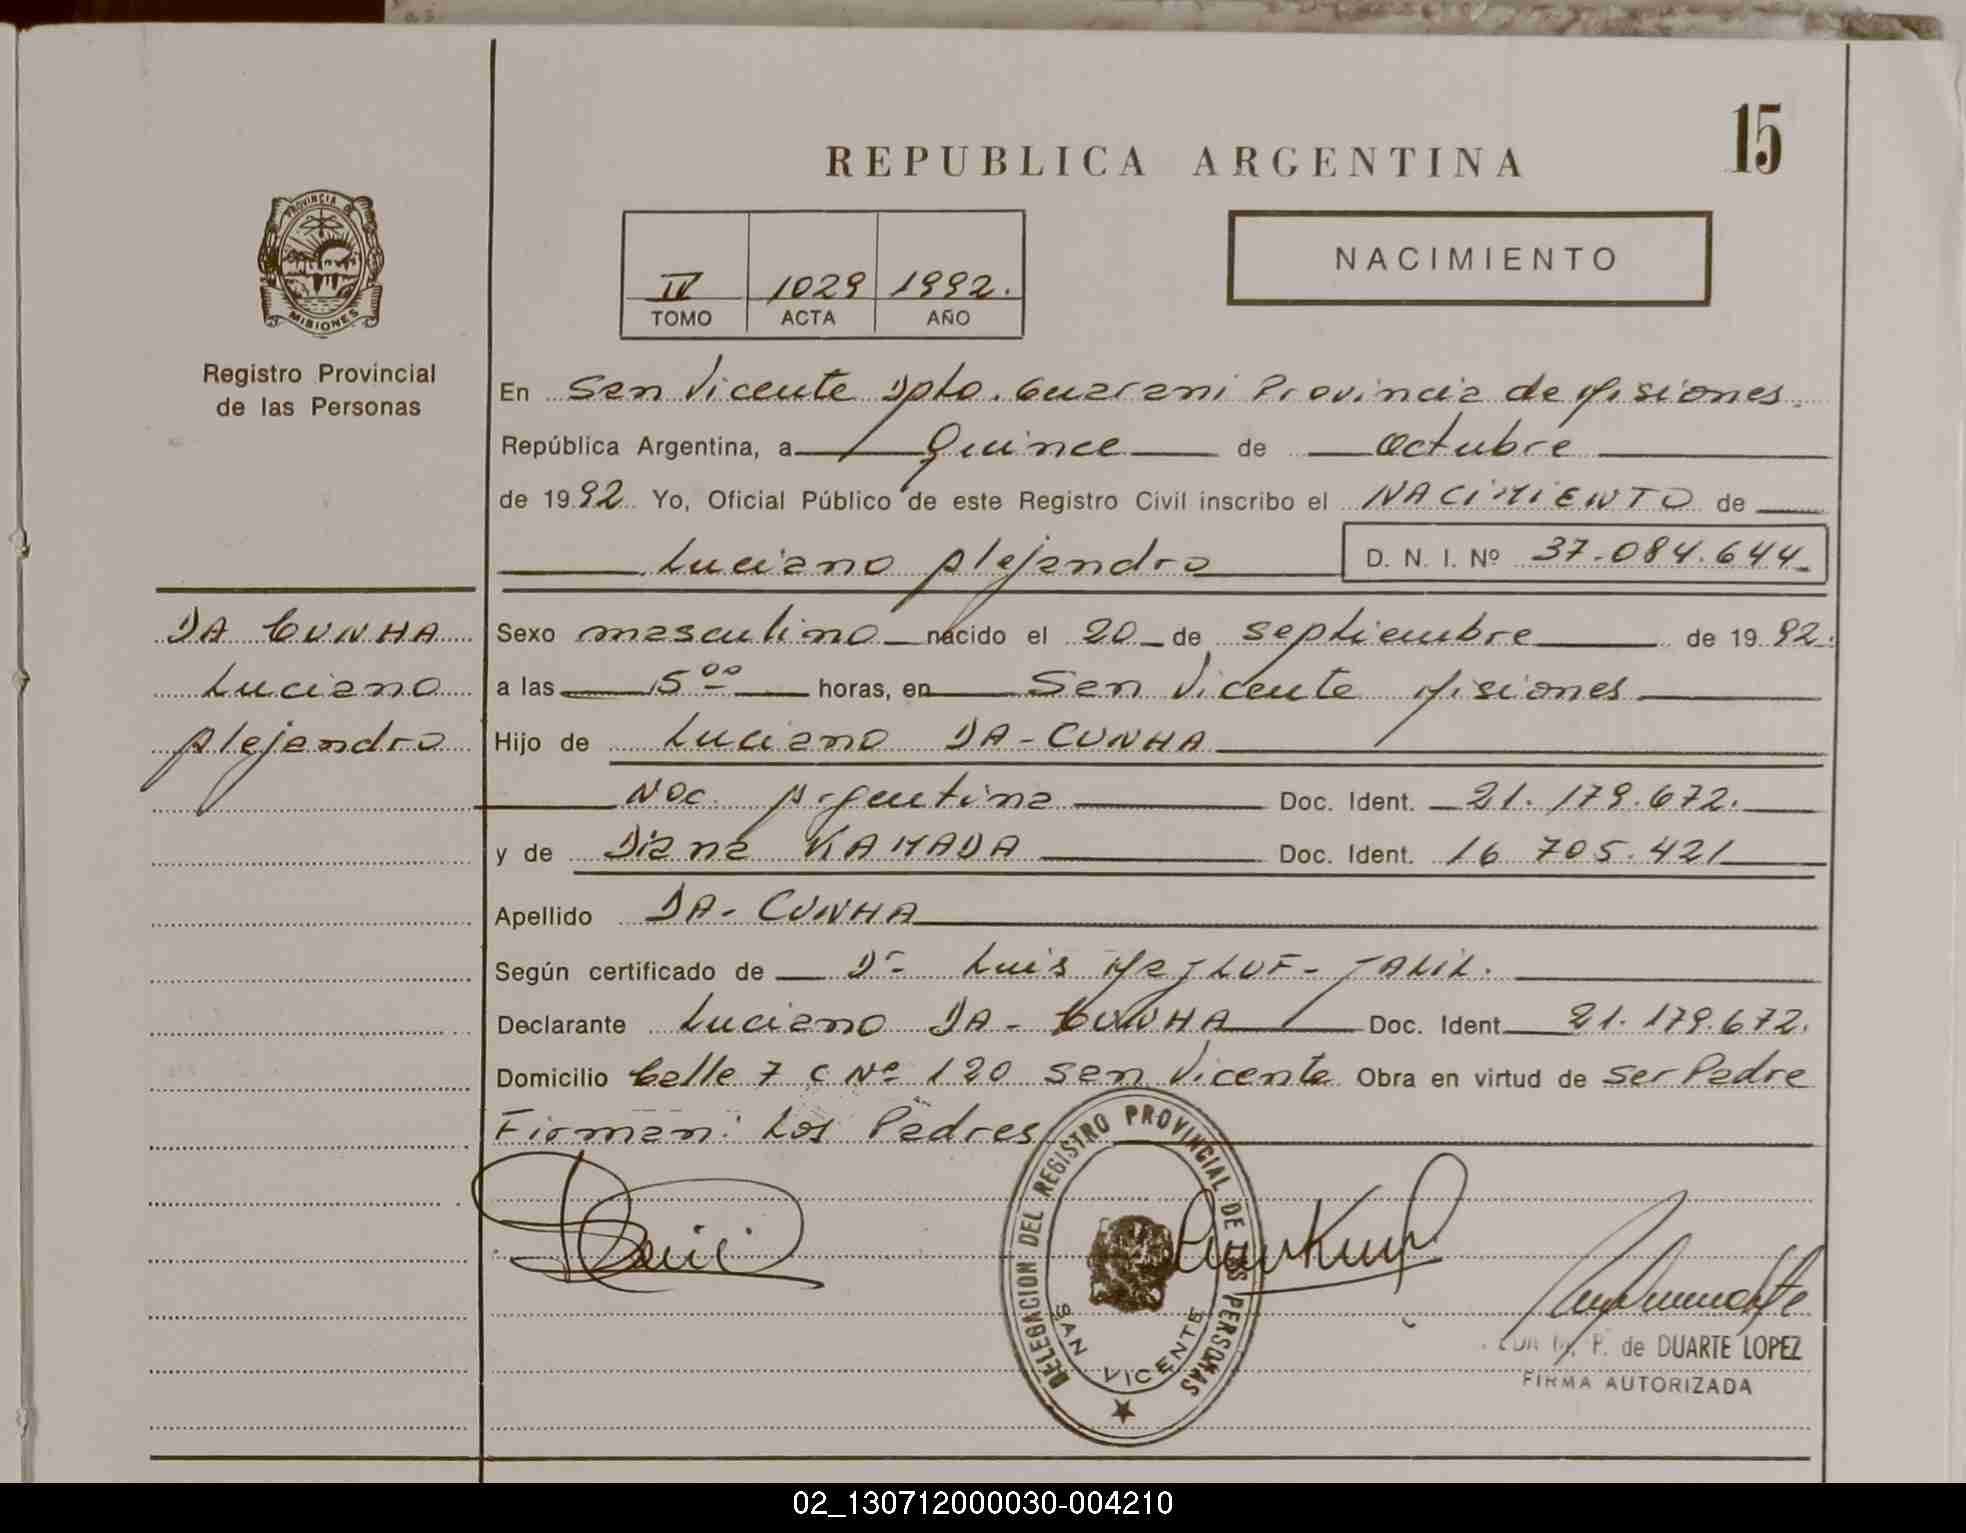 15
REPUBLICA ARGENTINA
PROVINCIA DE
MISIONES
Registro Provincial
de las Personas
NACIMIENTO
IV 1029 1992.
TOMO ACTA AÑO
En San Vicente Dpto. Guarani Provincia de Misiones.
República Argentina, a Quince de Octubre
de 1992 Yo, Oficial Público de este Registro Civil inscribo el NACIMIENTO de
Luciano Alejandro D. N. I. Nº 37.084.644
DA CUNHA
Luciano
Alejandro
Sexo masculino nacido el 20 de septiembre de 1992.
a las 5 00 horas, en San Vicente Misiones
Hijo de Luciano DA-CUNHA
Nac. Argentina Doc. Ident. 21.179.672.
y de Diana KAMADA Doc. Ident. 16 705.421
Apellido DA-CUNHA
Según certificado de Dr Luis
Declarante Luciano DA-CUNHA Doc. Ident. 21.179.672.
Domicilio Calle 7 C Nº 120 San Vicente Obra en virtud de ser Padre
Firman: Los Padres
DELEGACION DEL REGISTRO PROVINCIAL DE LAS PERSONAS
SAN VICENTE
P. de DUARTE LOPEZ
FIRMA AUTORIZADA
02_130712000030-004210